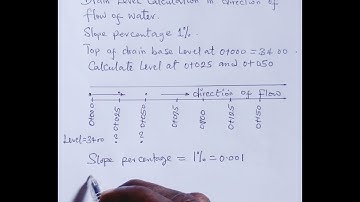 Drain Level Calculation in direction of
flow of water.
Slope percentage 1%.
Top of drain base Level at 0+000 = 34.00.
Calculate Level at 0+025 and 0+050
direction of flow
0+000 0+025 0+050 0+075 0+100 0+125 0+150
Level=34.00 ? ?
Slope percentage = 1% = 0.001